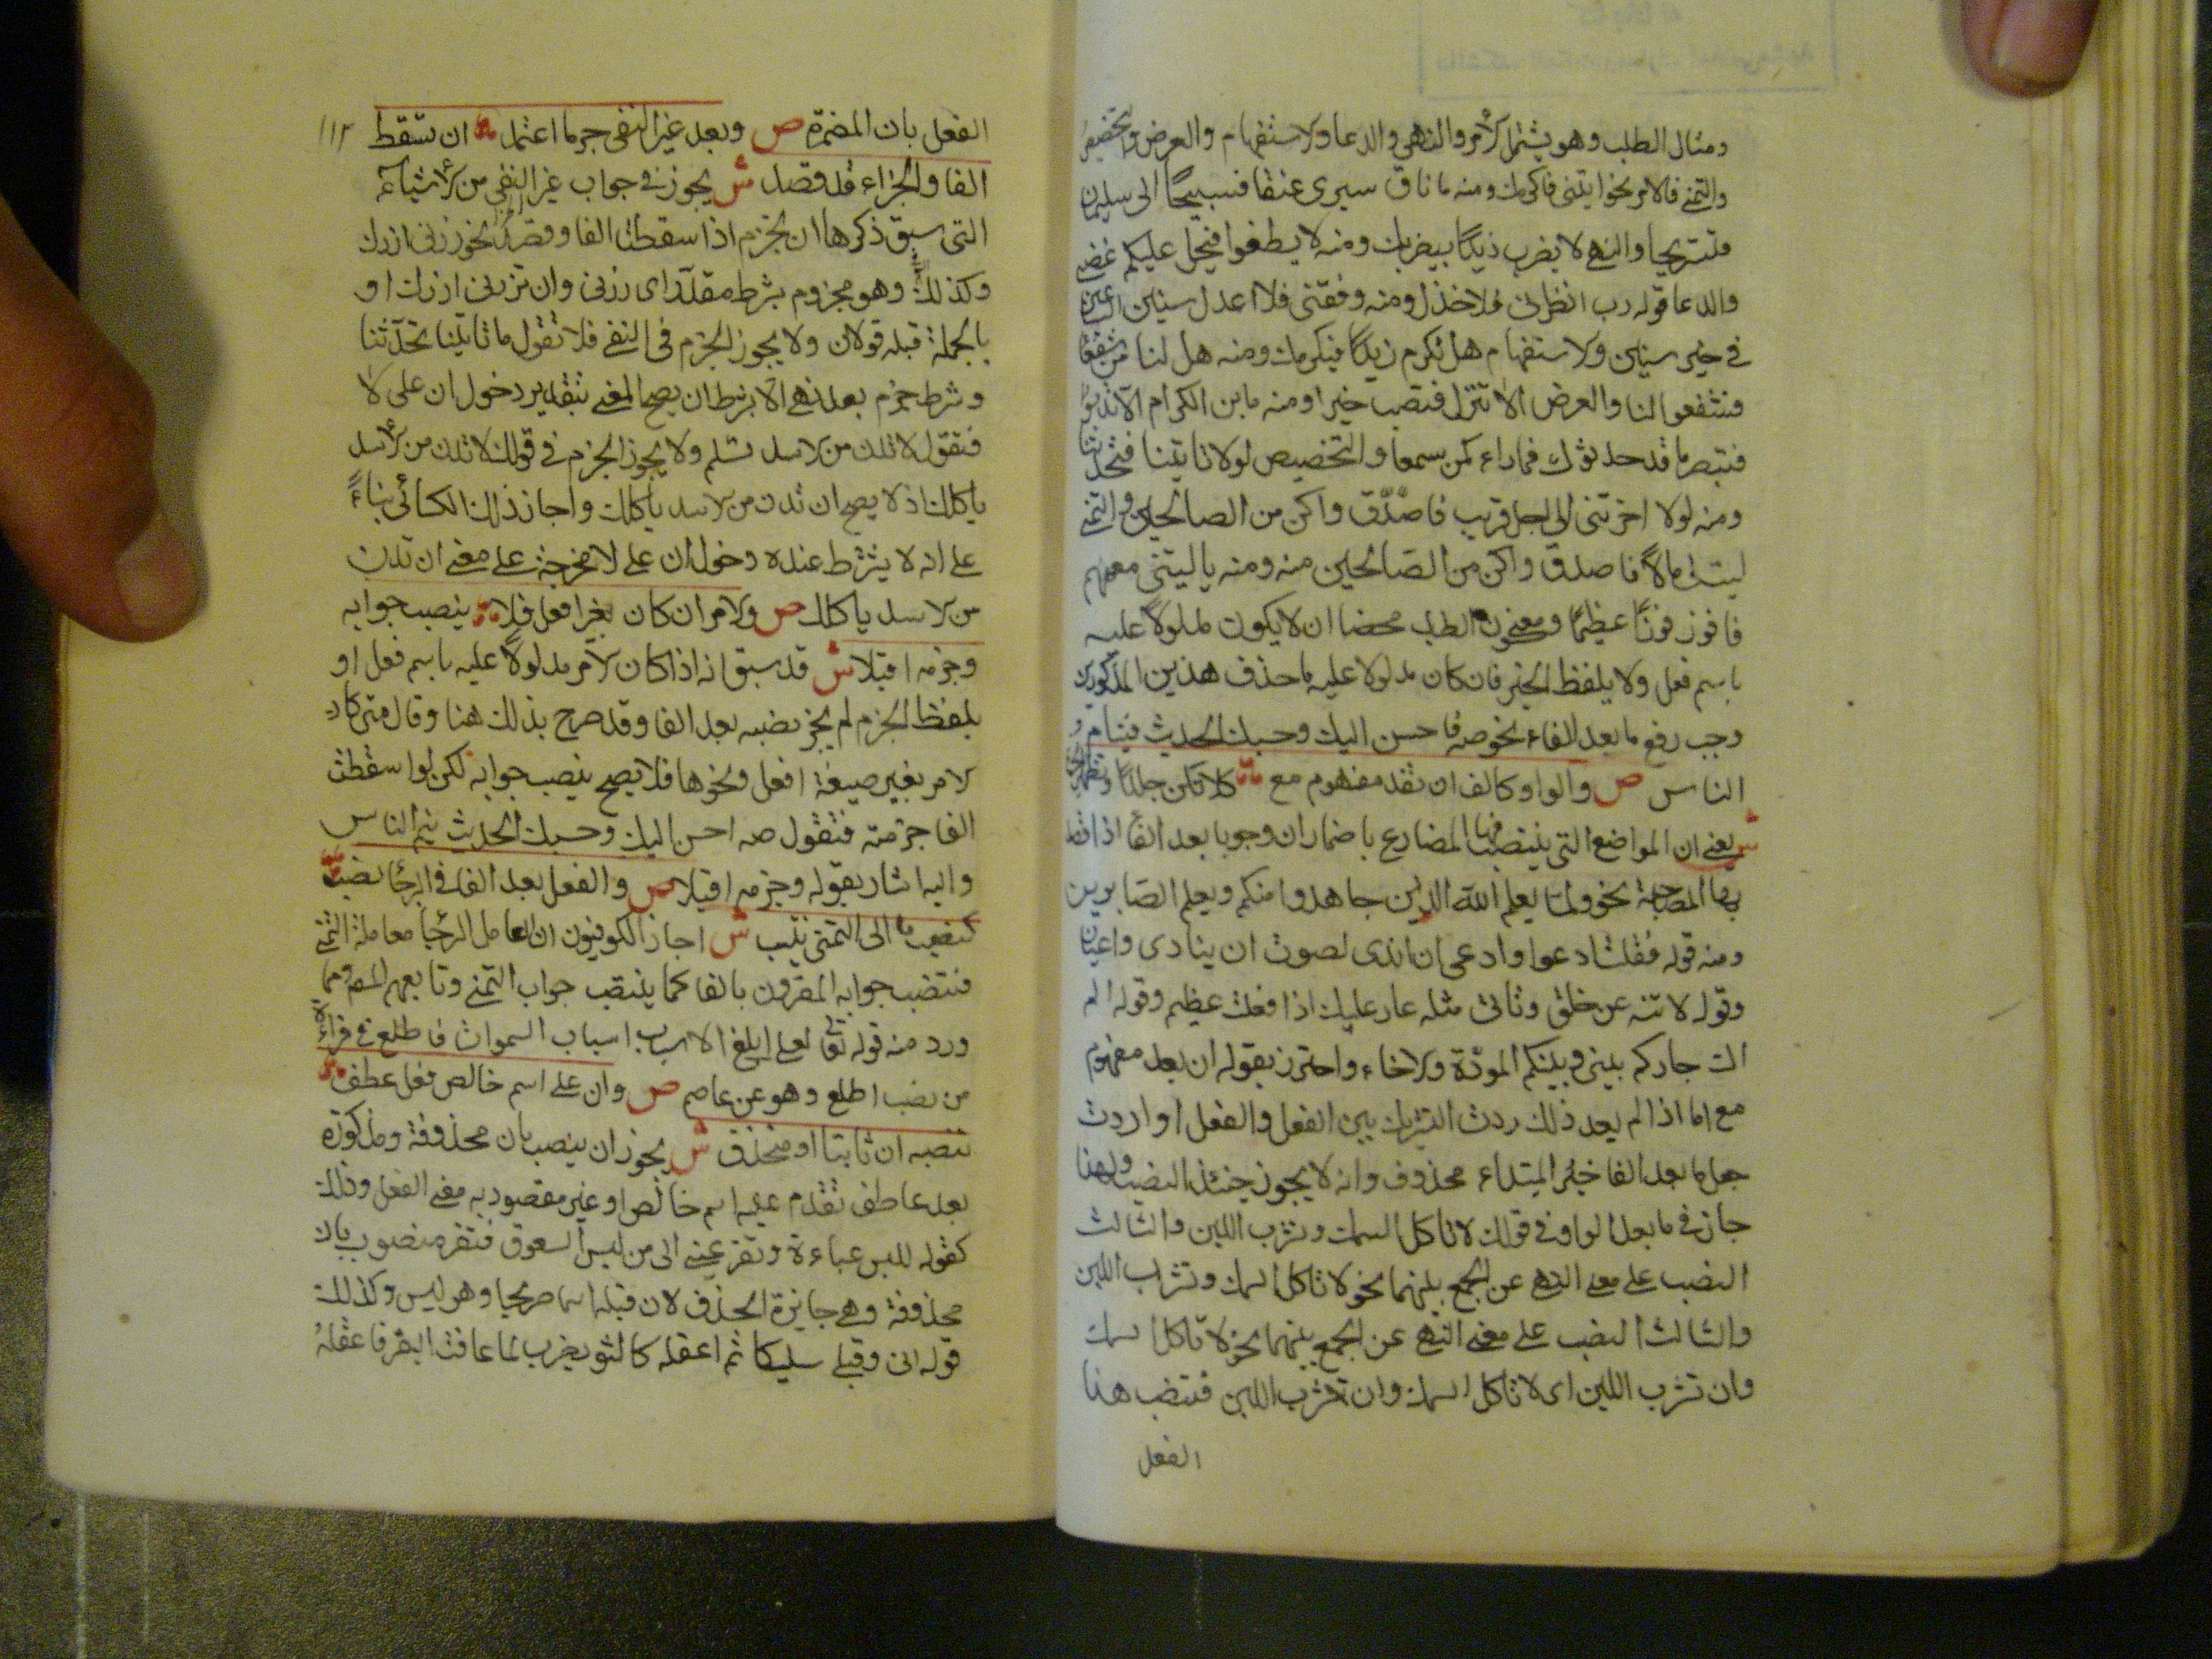 ومثال الطلب وهو يشمل الامر والنهي والدعا والاستفهام والعرض والتحضيض
والتمني فالامر نحو ايتني فاكرمك ومنه يا ناق سيرى عنقا فسيحًا الى سليمان
فنستريحا والنهي لا يضرب زيدًا بيضربك ومنه لا يطغوا فيحل عليكم غضبي
والدعا قوله رب انظرني فلا اخذل ومنه وفقني فلا اعدل سنين الساعين
في خير سنين والاستفهام هل تكرم زيدًا فيكرمك ومنه هل لنا من شفعا
فتشفعوا لنا والعرض الا تنزل فتصب خيرا ومنه يا بن الكرام الا تدنوا
فتبصر ما قد حدثوك فما راء كمن سمعا والتخصيص لولا تاتينا فتحدثنا
ومنه لولا اخرتني الى اجل قريب فاصّدّق واكن من الصالحين والتمني
ليت لي مالاً فاصدق واكن من الصّالحين منه ومنه يا ليتني معهم
فافوز فوزًا عظيمًا ومعنى كون الطلب محضا ان لا يكون مدلولاً عليه
باسم فعل ولا بلفظ الخبر فان كان مدلولا عليه باحد هذين المذكورين
وجب رفع ما بعد الفاء نحو صه فاحسن اليك وحسبك الحديث فينام
الناس ص والواو كالفا ان تفد مفهوم مع كلا تكن جلدًا وتظهر الجزع
ش يعني ان المواضع التي ينتصب فيها المضارع باضمار ان وجوبا بعد الفا اذا قصد
بها المصاحبة نحو ولما يعلم الله الذين جاهدوا منكم ويعلم الصّابرين
ومنه قوله فقلت ادعوا وادعى ان اندى لصوت ان ينادى داعيان
وقوله لا تنه عن خلق وتاتي مثله عار عليك اذا فعلت عظيم وقوله الم
اك جاركم بيني وبينكم المودّة والاخاء واحترز بقوله ان بعد مفهوم
مع اما اذا لم يعد ذلك ردت التشريك بين الفعل والفعل او اردت
جعل ما بعد الفا خبرًا لمبتداء محذوف وانه لا يجوز حينئذ النصب ولهذا
جاز في ما بعد الواو في قولك لا تاكل السمك وتشرب اللبن والثالث
النصب على معنى النهي عن الجمع بينهما نحو لا تاكل السمك وتشرب اللبن
والثالث النصب على معنى النهي عن الجمع بينهما نحو لا تاكل السمك
وان تشرب اللبن اى لا تاكل السمك وان تشرب اللبن فتنصب هذا
الفعل
١١٢
الفعل بان المضمرة ص وبعد غير النفي جزما اعتمد ان تسقط
الفا والجزاء قد قصد ش يجوز في جواب غير النفي من الاشياء
التي سبق ذكرها ان يجزم اذا سقطت الفا وقصد الجزا نحو زرني ازرك
وكذلك وهو مجزوم بشرط مقدّر اى زرني وان تزرني ازرك او
بالجملة قبله قولان ولا يجوز الجزم في النفي فلا تقول ما تاتينا تحدّثنا
وشرط جزم بعد نهي اى بشرط ان يصح المعنى بتقدير دخول ان على لا
فتقول لا تدن من الاسد تسلم ولا يجوز الجزم في قولك لا تدن من الاسد
ياكلك اذ لا يصح ان تدن من الاسد ياكلك واجاز ذلك الكسائي بناءً
على انه لا يشترط عنده دخول ان على لا فجزمه على معنى ان تدن
من الاسد ياكلك ص والامر ان كان بغير افعل فلا ينصب جوابه
وجزمه اقبلا ش قد سبق انه اذا كان الامر مدلولاً عليه باسم فعل او
بلفظ الجزم لم يجز نصبه بعد الفا وقد صرح بذلك هنا وقال متى كان
الامر بغير صيغة افعل ونحوها فلا يصح ينصب جوابه لكن لو اسقطت
الفا جزمته فتقول صه احسن اليك وحسبك الحديث ينم الناس
واليه اشار بقوله وجزمه اقبلا ص والفعل بعد الفا في الرجا نصب
كنصب ما الى التمني ينتسب ش اجاز الكوفيون ان يعامل الرجا معاملة التمني
فينتصب جوابه المقرون بالفا كما ينتصب جواب التمني وتابعهم المص ومما
ورد منه قوله تعالى لعلي ابلغ الاسباب اسباب السموات فاطلع في قراءة
من نصب اطلع وهو عن عاصم ص وان على اسم خالص فعل عطف
تنصبه ان ثابتا او منحذف ش يجوز ان ينصب بان محذوفة ومذكورة
بعد عاطف تقدم عليه اسم خالص او غير مقصود به معنى الفعل وذلك
كقوله للبس عباءة وتقر عيني الى من لبس السفوف فتقر منصوب بان
محذوفة وهي جايزة الحذف لان قبله اسما صريحا وهو لبس وكذلك
قوله اني وقتلي سليكا ثم اعقله كالثور يضرب لما عافت البقر فاعقله